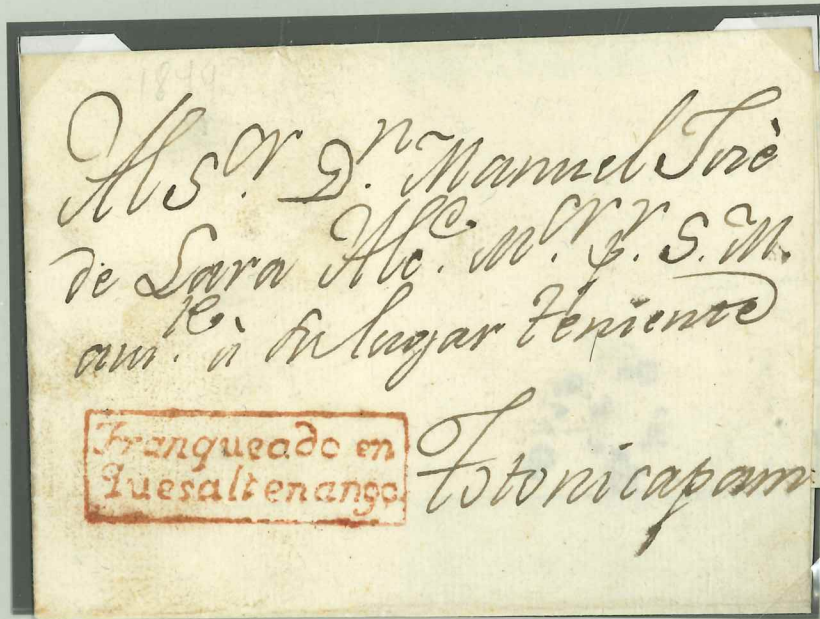 1849
Al S.or D.n Manuel José
de Lara Alc.e M.or p.r S. M.
au.te à su lugar teniente
Franqueado en
Quesaltenango
Totonicapam